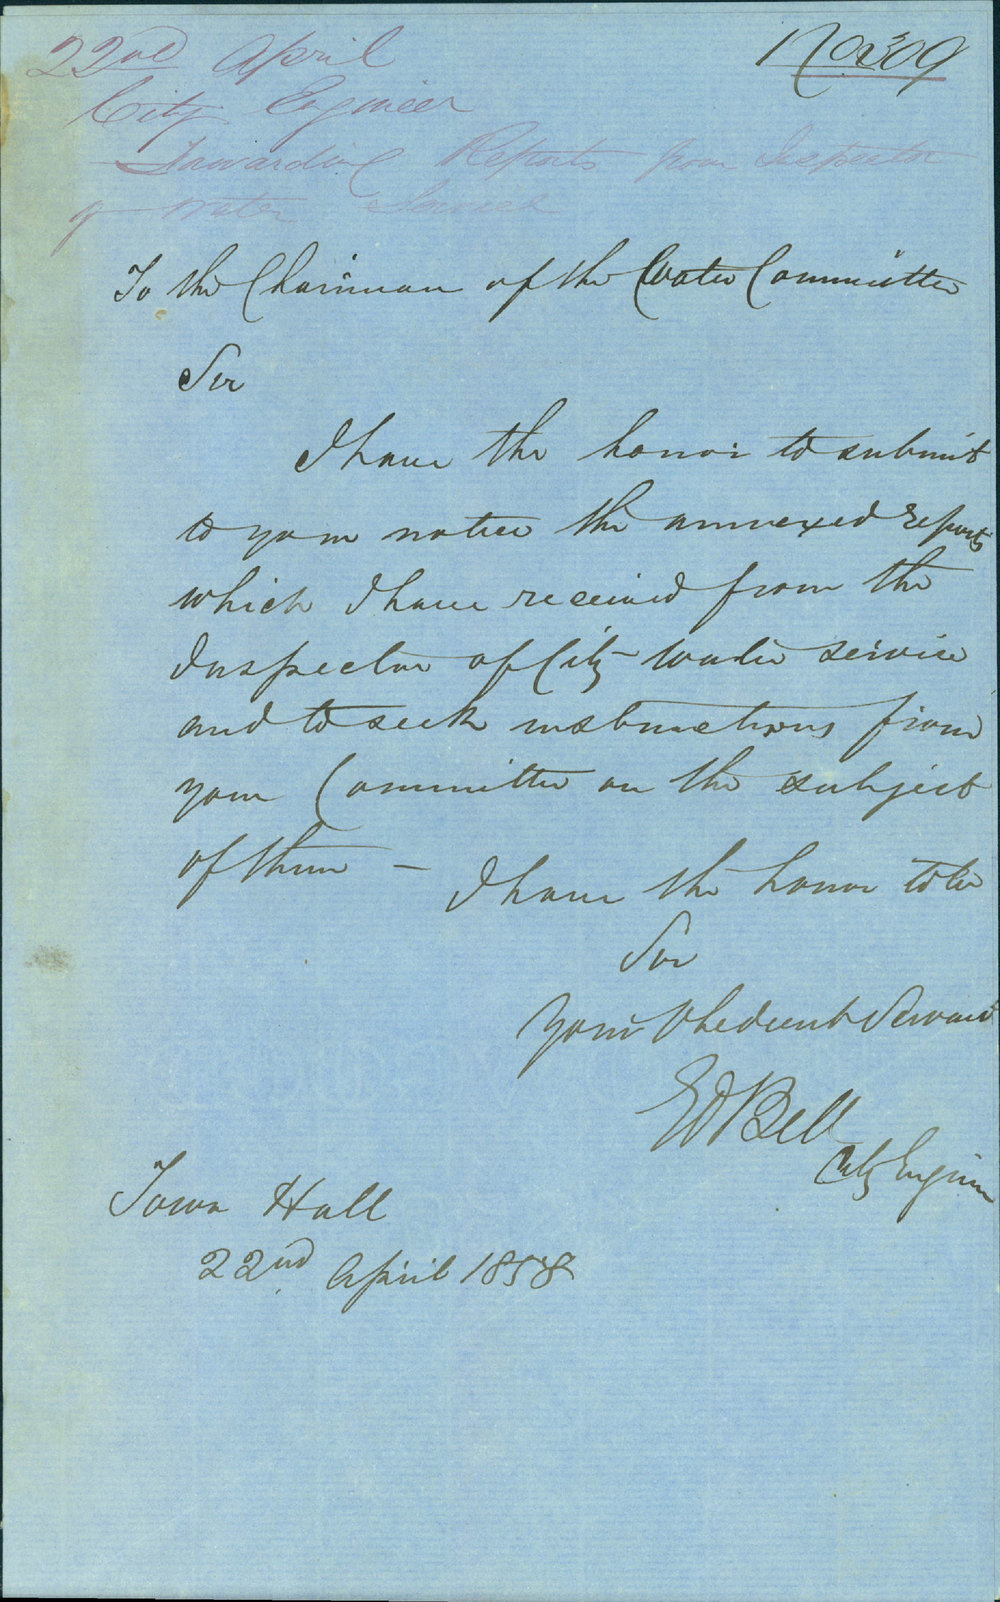 22nd April
No 309
City Engineer
Forwarding Reports from Inspector
of Water Service
To the Chairman of the Water Committee
Sir
I have the honor to submit
to your notice the annexed reports
which I have received from the
Inspector of City water service
and to seek instructions from
your Committee on the subject
of them —
I have the honor to be
Sir
Your Obedient Servant
Ed Bell
City Engineer
Town Hall
22nd April 1858